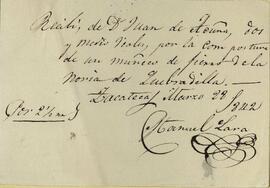 Recibí, de Dn Juan de Acuña, dos
y medio reales, por la compostura
de un muñeco de fierro de la
noria de Quebradilla.
Zacatecas Marzo 29 1842
Manuel Lara
Son 2½ rs